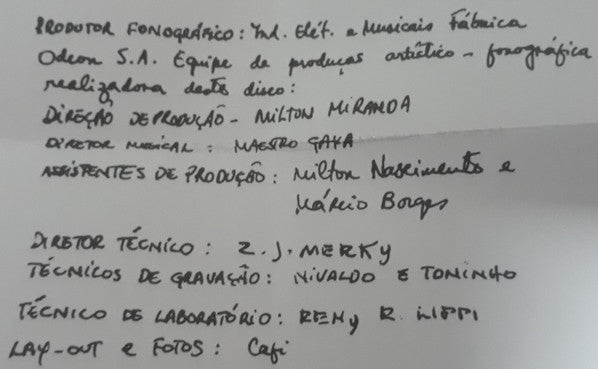 PRODUTOR FONOGRÁFICO: Ind. Elét. e Musicais Fábrica
Odeon S.A. Equipe de produção artístico - fonográfica
realizadora deste disco:
DIREÇÃO DE PRODUÇÃO - MILTON MIRANDA
DIRETOR MUSICAL: MAESTRO GAYA
ASSISTENTES DE PRODUÇÃO: Milton Nascimento e
Márcio Borges
DIRETOR TÉCNICO: Z. J. MERKY
TÉCNICOS DE GRAVAÇÃO: NIVALDO E TONINHO
TÉCNICO DE LABORATÓRIO: RENY R. LIPPI
LAY-OUT e FOTOS: Cafi